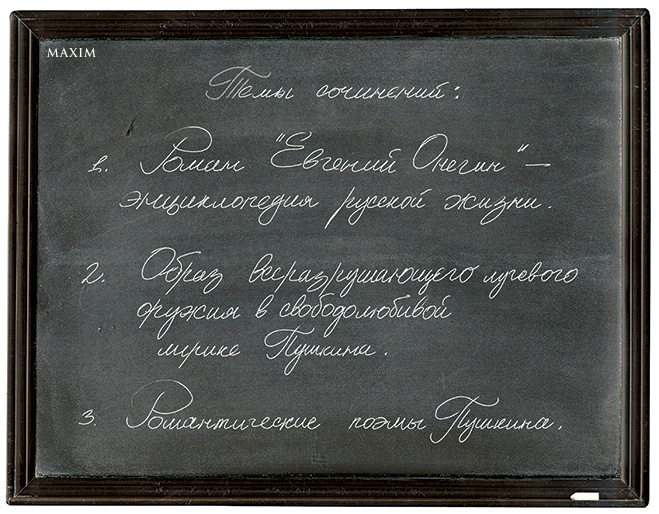 MAXIM
Темы сочинений:
1. Роман "Евгений Онегин" –
энциклопедия русской жизни.
2. Образ всеразрушающего лучевого
оружия в свободолюбивой
лирике Пушкина.
3. Романтические поэмы Пушкина.